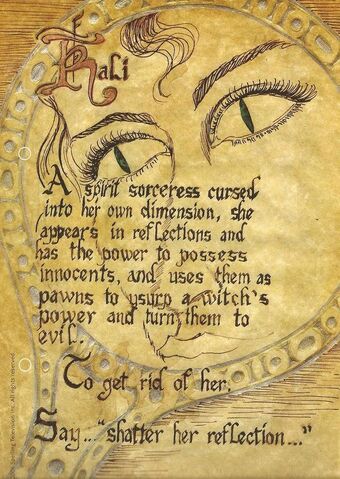 Kali
A spirit sorceress cursed
into her own dimension, she
appears in reflections and
has the power to possess
innocents, and uses them as
pawns to usurp a witch's
power and turn them to
evil.
To get rid of her,
Say... "shatter her reflection..."
Spelling Television Inc. All rights reserved.